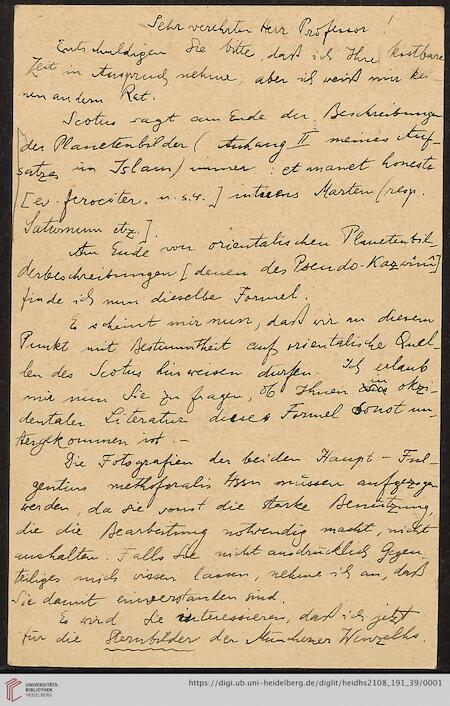 Sehr verehrter Herr Professor!
Entschuldigen Sie bitte, daß ich Ihre kostbare
Zeit in Anspruch nehme, aber ich weiß mir kei-
nen andern Rat.
Scotus sagt am Ende der Beschreibungen
der Planetenbilder (Anhang II meines Auf-
satzes im Islam) immer: et manet honeste
[ev. ferociter. u.s.w.] intuens Martem (resp.
Saturnum etz.].
Am Ende von orientalischen Planetenbil-
derbeschreibungen [denen des Pseudo-Kazwînî]
finde ich nun dieselbe Formel.
Es scheint mir nun, daß wir an diesem
Punkt mit Bestimmtheit auf orientalische Quel-
len des Scotus hinweisen dürfen. Ich erlaub
mir nun Sie zu fragen, ob Ihnen in okzi-
dentaler Literatur diese Formel sonst un-
tergekommen ist. -
Die Fotografien der beiden Haupt-Ful-
gentius methoforalis Hssn müssen aufgezogen
werden, da sie sonst die starke Benützung,
die die Bearbeitung notwendig macht, nicht
aushalten. Falls Sie nicht ausdrücklich Gegen-
teiliges mich wissen lassen, nehme ich an, daß
Sie damit einverstanden sind.
Es wird Sie interessieren, daß ich jetzt
für die Sternbilder der Münchener Wenzelhs.
UNIVERSITÄTS-
BIBLIOTHEK
HEIDELBERG
https://digi.ub.uni-heidelberg.de/diglit/heidhs2108_191_39/0001